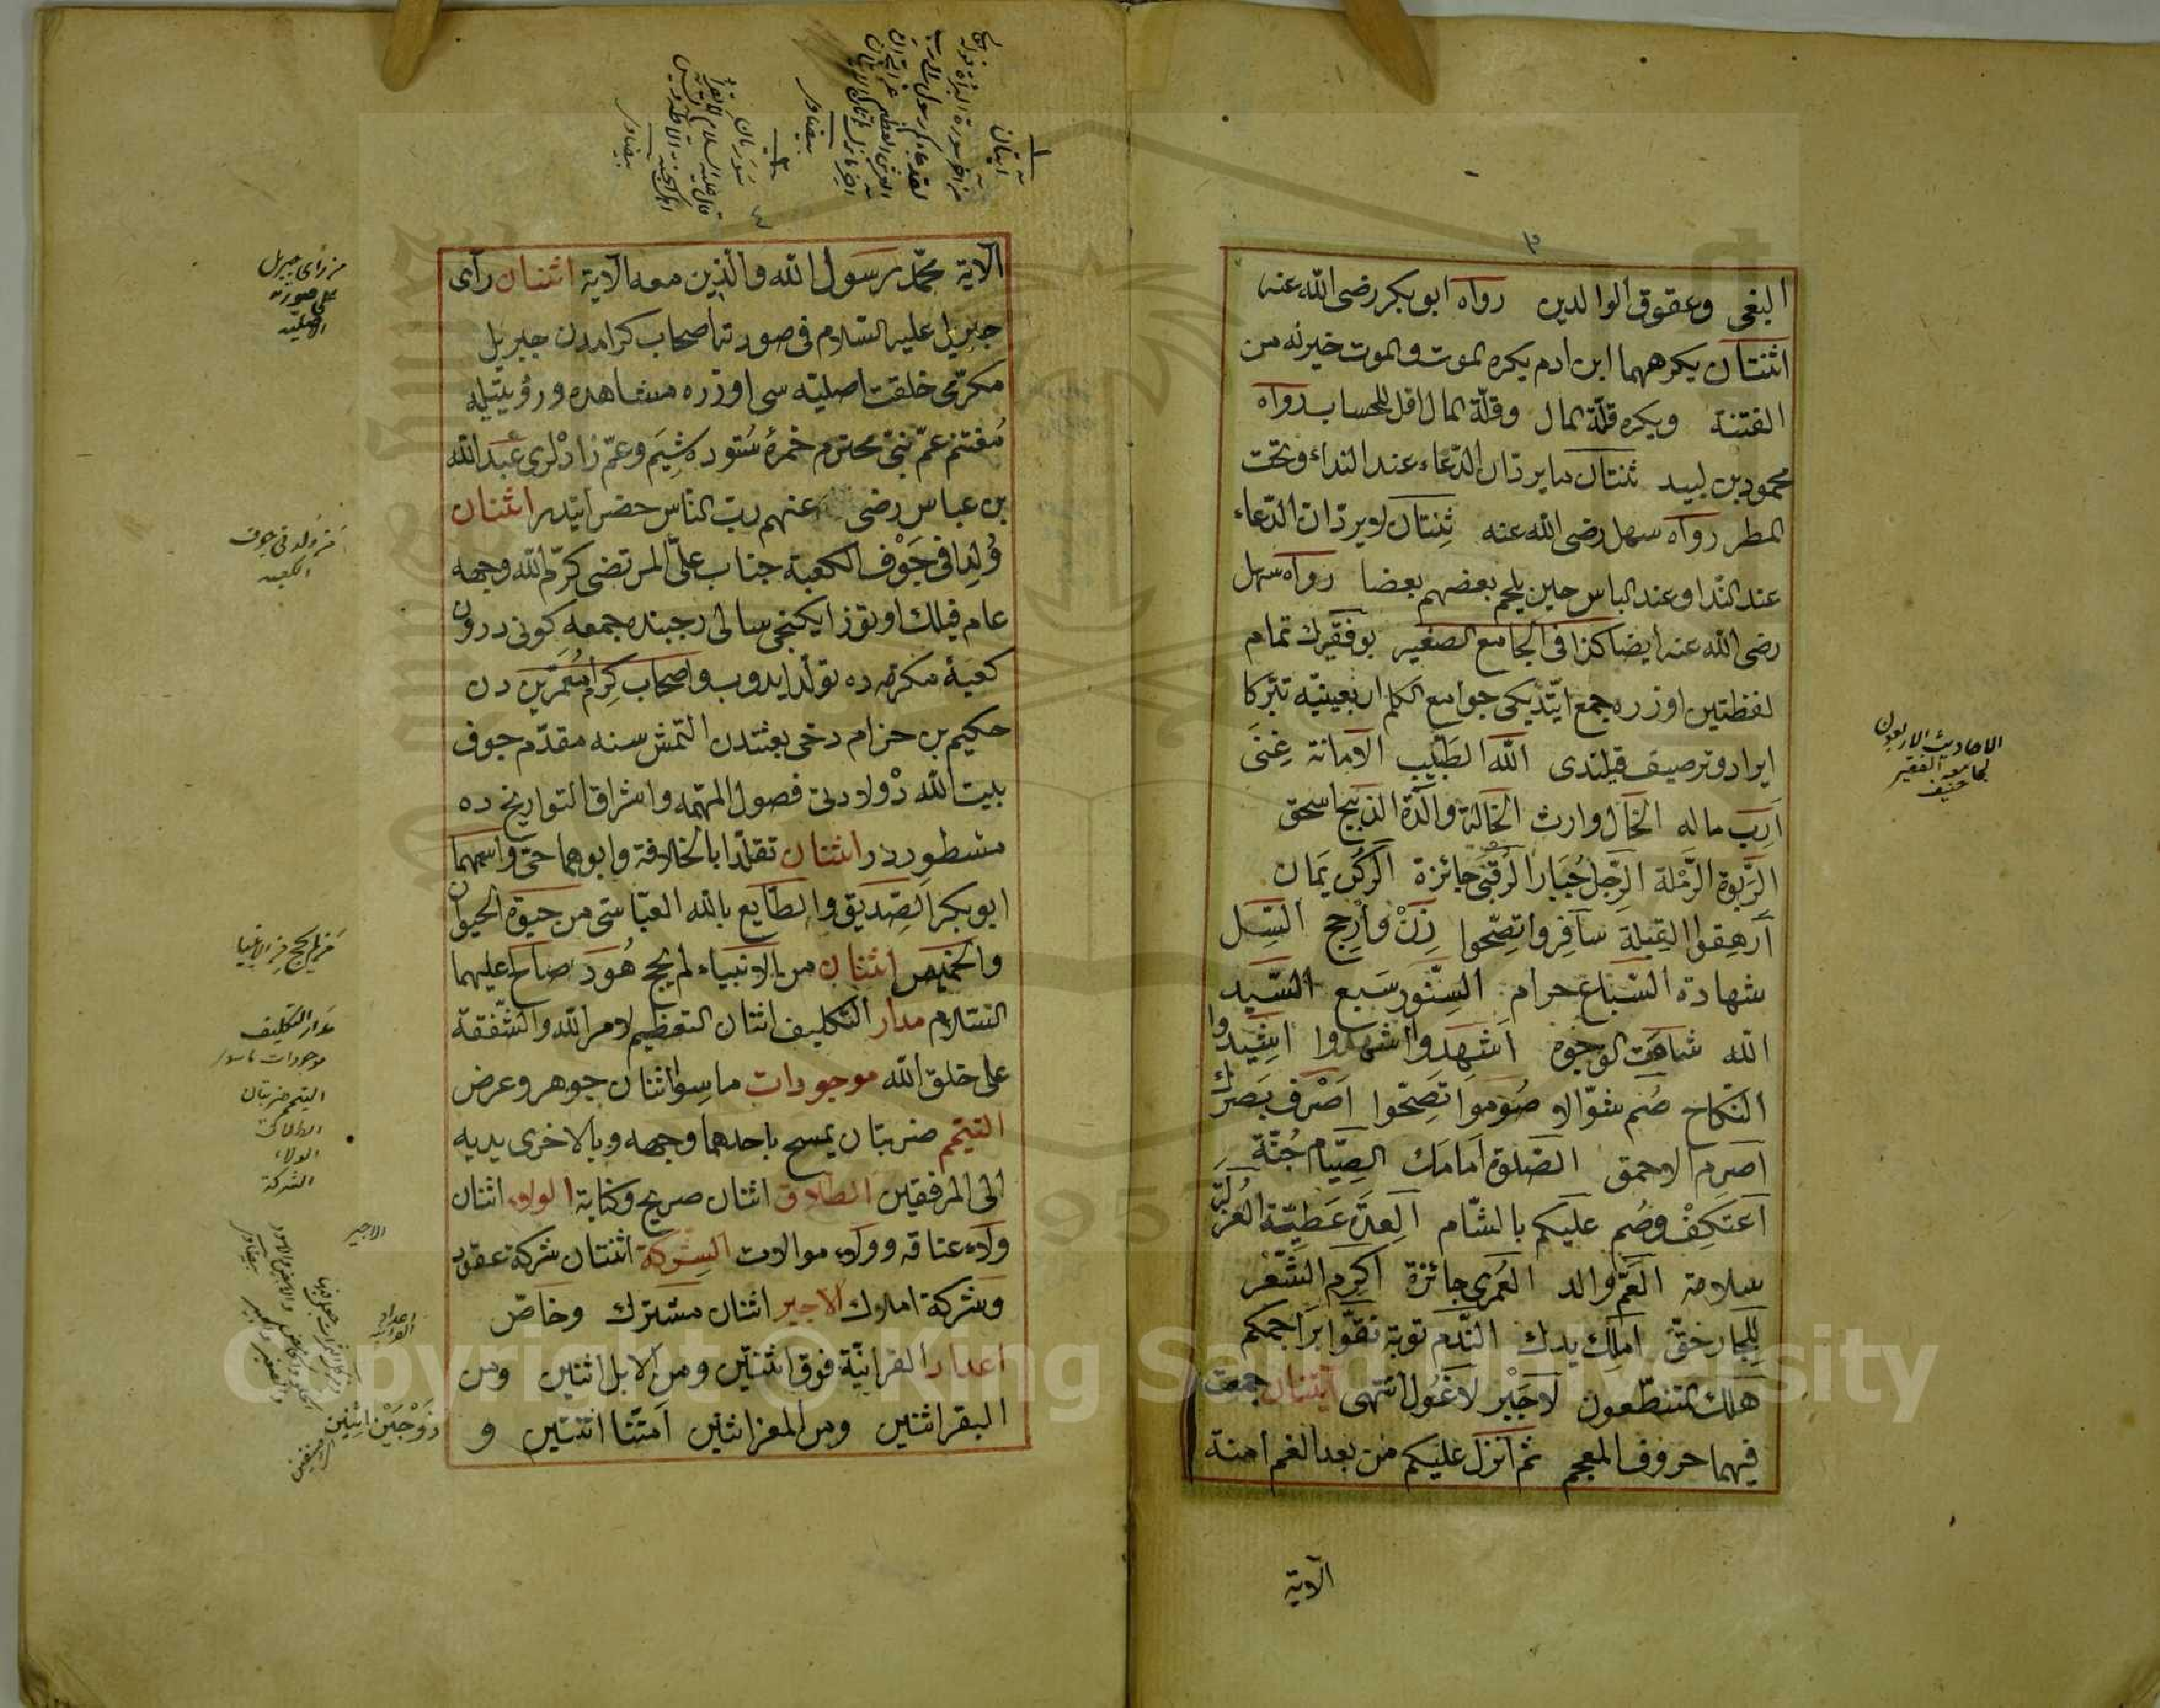 ٣
البغى وعقوق الوالدين رواه ابو بكر رضى الله عنه
اثنتان يكرههما ابن ادم يكره الموت والموت خير له من
الفتنة ويكره قلّة المال وقلّة المال اقل للحساب رواه
محمود بن لبيد ثنتان ما يردّان الدّعاء عند النداء وتحت
المطر رواه سهل رضى الله عنه ثِنتان لا يردّان الدّعاء
عند النّدا وعند الباس حين يلحم بعضهم بعضا رواه سهل
رضى الله عنه ايضا كذا فى الجامع الصغير بو فقيرك تمام
لفظتين اوزره جمع ايتديكى جوامع الكلم اربعينيّه تبرّكا
ايراد وترصيف قيلندى الله الطبيب الامانة غِنىً
اَرِب ماله الخال وارث الخالة والدة الذبيح اسحق
الرّبوة الرّملة الرّجل جُبَار الرّقبى جائزة الركن يَمان
اَرهِقوا القبلة سافروا تصِحّوا زِنْ وارجح السّل
شهادة السّباع حرام السّنّور سَبع السّيد
الله شاهت الوجوه اَشهِدوا اشهدوا اشيدوا
النكاح صُم شوّالا صُوموا تصِحّوا اَصرف بَصَرك
اصرم الاحمق الصّلوة اَمامك الصّيام جُنّة
اَعتكِفْ وصُم عليكم بالشّام العِدَة عَطيّة العُزلة
سلامة العَمّ والد العُمرى جائزة اكرم الشّعْر
للجار حَقّ املِك يدك النّدم توبة نقّوا براجمكم
هلك المتنطّعون لا جَبْر لا غَول انتهى اثنتان جمعت
فيهما حروف المعجم ثم انزل عليكم من بعد الغم امنة
الاية
الاحاديث الاربعون
لجامعه الفقير
حنيف
٤
الاية محمّد رسول الله والّذين معه الاية اثنان رآى
جبريل عليه السّلام فى صورته اصحاب كرامدن جبريل
مكرّمى خلقت اصليّه سى اوزره مشاهده ورؤيتيله
مُغتنم عمّ نبىّ محترم حمزهٔ سُتوده شِيَم وعمّ زادْلرى عبد الله
بن عباس رضى عنهم ربّ النّاس حضراتيدر اثنان
وُلِدا فى جَوْف الكعبة جناب علىّ المرتضى كرّم الله وجهه
عام فيلك اوتوز ايكنجى سالى رجبنده جمعه كونى درون
كعبهٔ مكرّمه ده تولّد ايدوب واصحاب كِرام مُعَمَّرين دن
حكيم بن حزام دخى بعثتدن التمش سنه مقدّم جوف
بيت الله ده ولادتى فصول المهمّه واشراق التواريخ ده
مسطوردر اثنان تقلّدا بالخلافة وابوهما حىّ واسمهما
ابو بكر الصّديق والطّايع بالله العبّاسى من حيوة الحيوان
والخميس اثنان من الانبياء لم يحج هُود صالح عليهما
السّلام مدار التكليف اثنان التعظيم لامر الله والشّفقة
على خلق الله موجودات ماسِوا اثنان جوهر وعرض
التيّمم ضربتان يمسح باحدهما وجهه وبالاخرى يديه
الى المرفقين الطّلاق اثنان صريح وكناية الولاء اثنان
ولاء عتاقه وولاء موالات الشركة اثنتان شركة عقود
وشركة املاك الاجير اثنان مشترك وخاصّ
اعداد القرانيّة فوق اثنتين ومن الابل اثنين ومن
البقر اثنين ومن المعز اثنين اَمتّنا اثنتين و
من راى جبريل
على صورته
الاصليه
من ولد فى جوف
الكعبه
من لم يحج من الانبيا
مدار التكليف
موجودات ماسوا
التيمم ضربتان
الطلاق
الولاء
الشركة
الاجير
اعداد
القرانيه
زَوْجَيْن اثنين